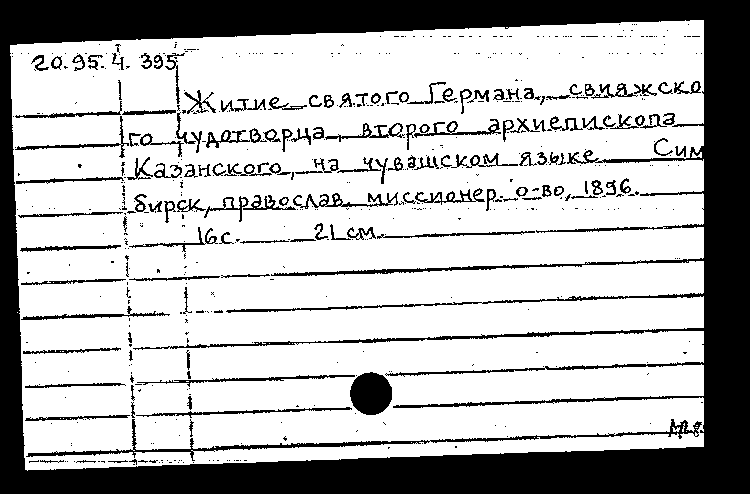 20.95.4.395
Житие святого Германа, свияжско
го чудотворца, второго архиепископа
Казанского, на чувашском языке Сим
бирск, православ. миссионер. о-во, 1896.
16с. 21 см.